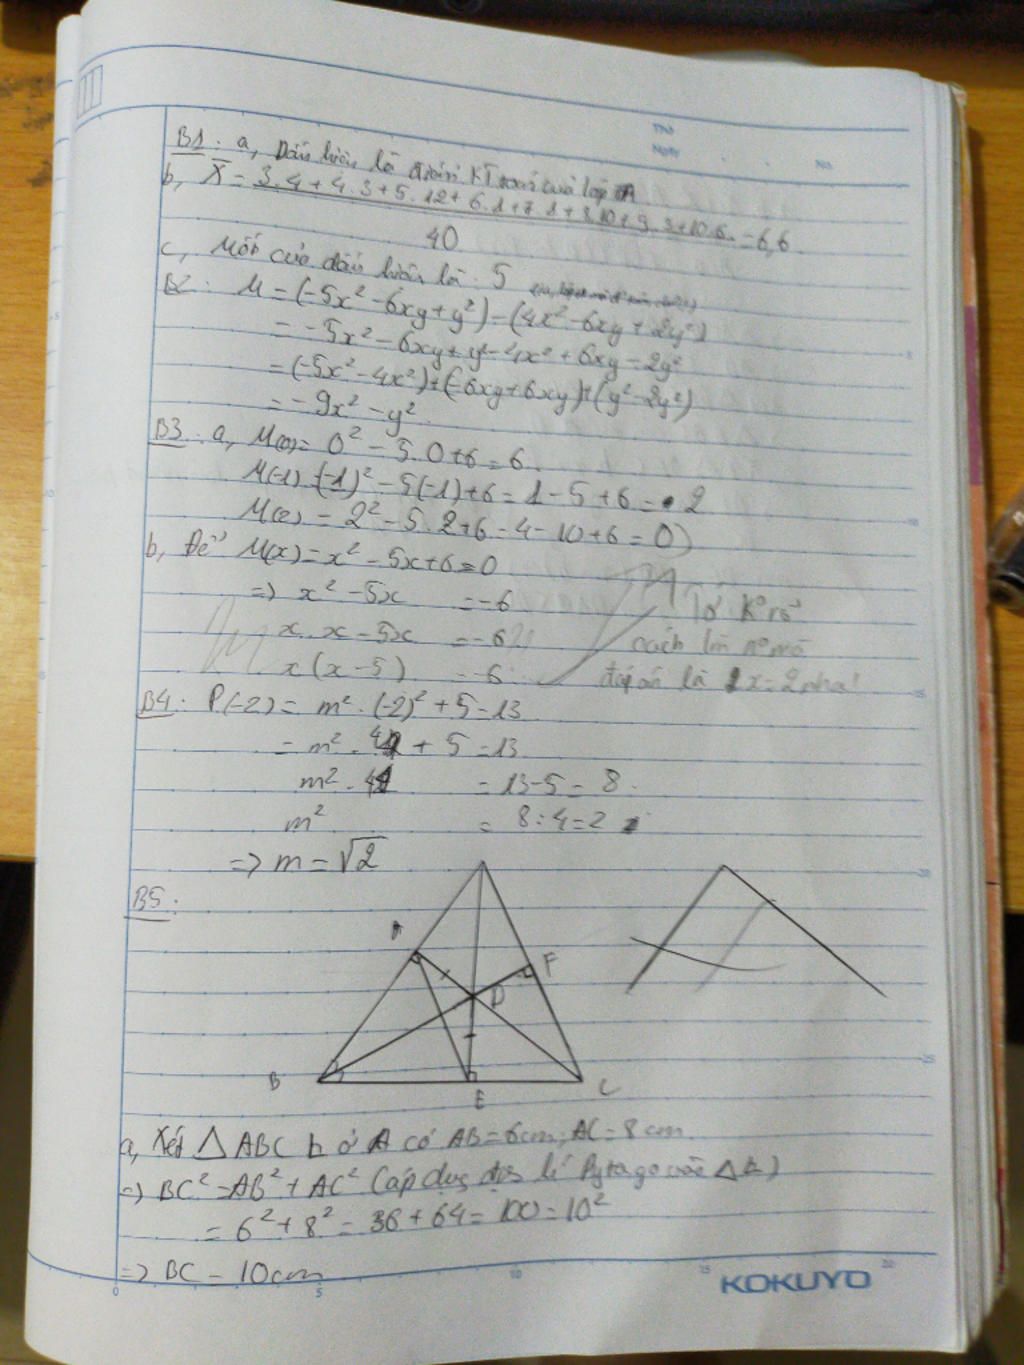 Thứ
Ngày . . No.
B1: a, Dấu hiệu là điểm KT toán của lớp 7A
b, X̄ = 3.4+4.3+5.12+6.1+7.1+8.10+9.3+10.6. = 6,6
40
c, Mốt của dấu hiệu là: 5
B2: M = (-5x² - 6xy + y²) - (4x² - 6xy + 2y²)
= -5x² - 6xy + y² - 4x² + 6xy - 2y²
= (-5x² - 4x²) + (-6xy + 6xy) + (y² - 2y²)
= -9x² - y²
B3: a, M(0) = 0² - 5.0 + 6 = 6.
M(-1) = (-1)² - 5(-1) + 6 = 1 - 5 + 6 = 2
M(2) = 2² - 5.2 + 6 = 4 - 10 + 6 = 0)
b, Để M(x) = x² - 5x + 6 = 0
=> x² - 5x = -6
x.x - 5x = -6
x(x - 5) = -6
Tớ k° rõ
cách làm n° mà
đáp án là x=2 nha!
B4: P(-2) = m². (-2)² + 5 = 13
= m². 4 + 5 = 13
m². 4 = 13 - 5 = 8.
m² = 8 : 4 = 2
=> m = √2
B5:
A
F
D
B
C
E
a, Xét △ABC ⊥ ở A có AB = 6cm; AC = 8cm.
=> BC² = AB² + AC² (áp dụng định lí Pytago vào △ ⊥)
= 6² + 8² = 36 + 64 = 100 = 10²
=> BC = 10cm
0 5 10 15 20
KOKUYO